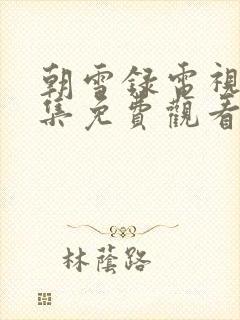 朝雪錄電視
集免費觀看
林蔭路